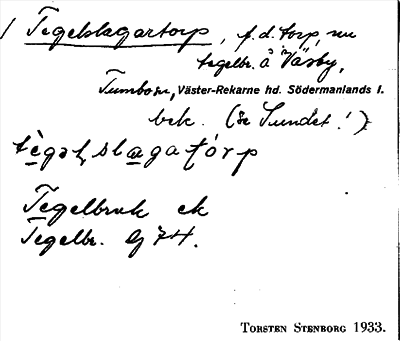 / Tegelslagartorp, f.d. torp, nu
tegelbr. å Väsby,
Tumbo sn, Väster-Rekarne hd. Södermanlands l.
bek. (se Sundet!)
tègəl slagatórp
Tegelbruk ek
Tegelbr. Gj 74.
TORSTEN STENBORG 1933.